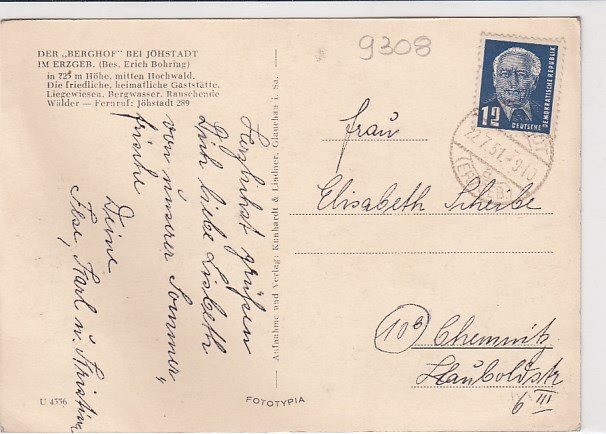 DER „BERGHOF" BEI JÖHSTADT
IM ERZGEB. (Bes. Erich Bohring)
in 725 m Höhe, mitten Hochwald.
Die friedliche, heimatliche Gaststätte.
Liegewiesen, Bergwasser, Rauschende
Wälder — Fernruf: Jöhstadt 289
9308
12
DEUTSCHE
DEMOKRATISCHE REPUBLIK
7.51.-9-10
(ERZGEB)
Herzlichst grüßen
Dich liebe Lisbeth
von unserer Sommer,
frische
Deine
Ilse, Karl u. Christine
Aufnahme und Verlag: Kunhardt & Lindner, Glauchau i. Sa.
Frau
Elisabeth Scheibe
10b
Chemnitz
Hauboldstr
6 III
U 4556
FOTOTYPIA